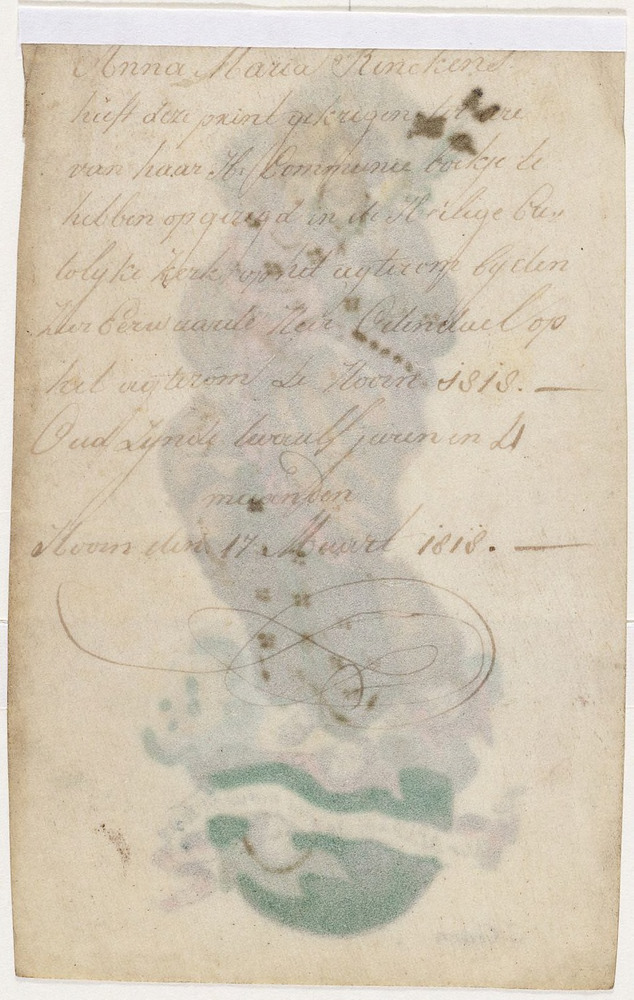 Anna Maria Rinckens
heeft deze prent gekregen ter ere
van haar H: Communie boekje te
hebben opgezegd in de Heilige
kerk op het agterom by den
Heer op
het agterom te Hoorn 1818. —
Oud zynde twaalf jaren en 4
maanden
Hoorn den 17 Maart 1818. —